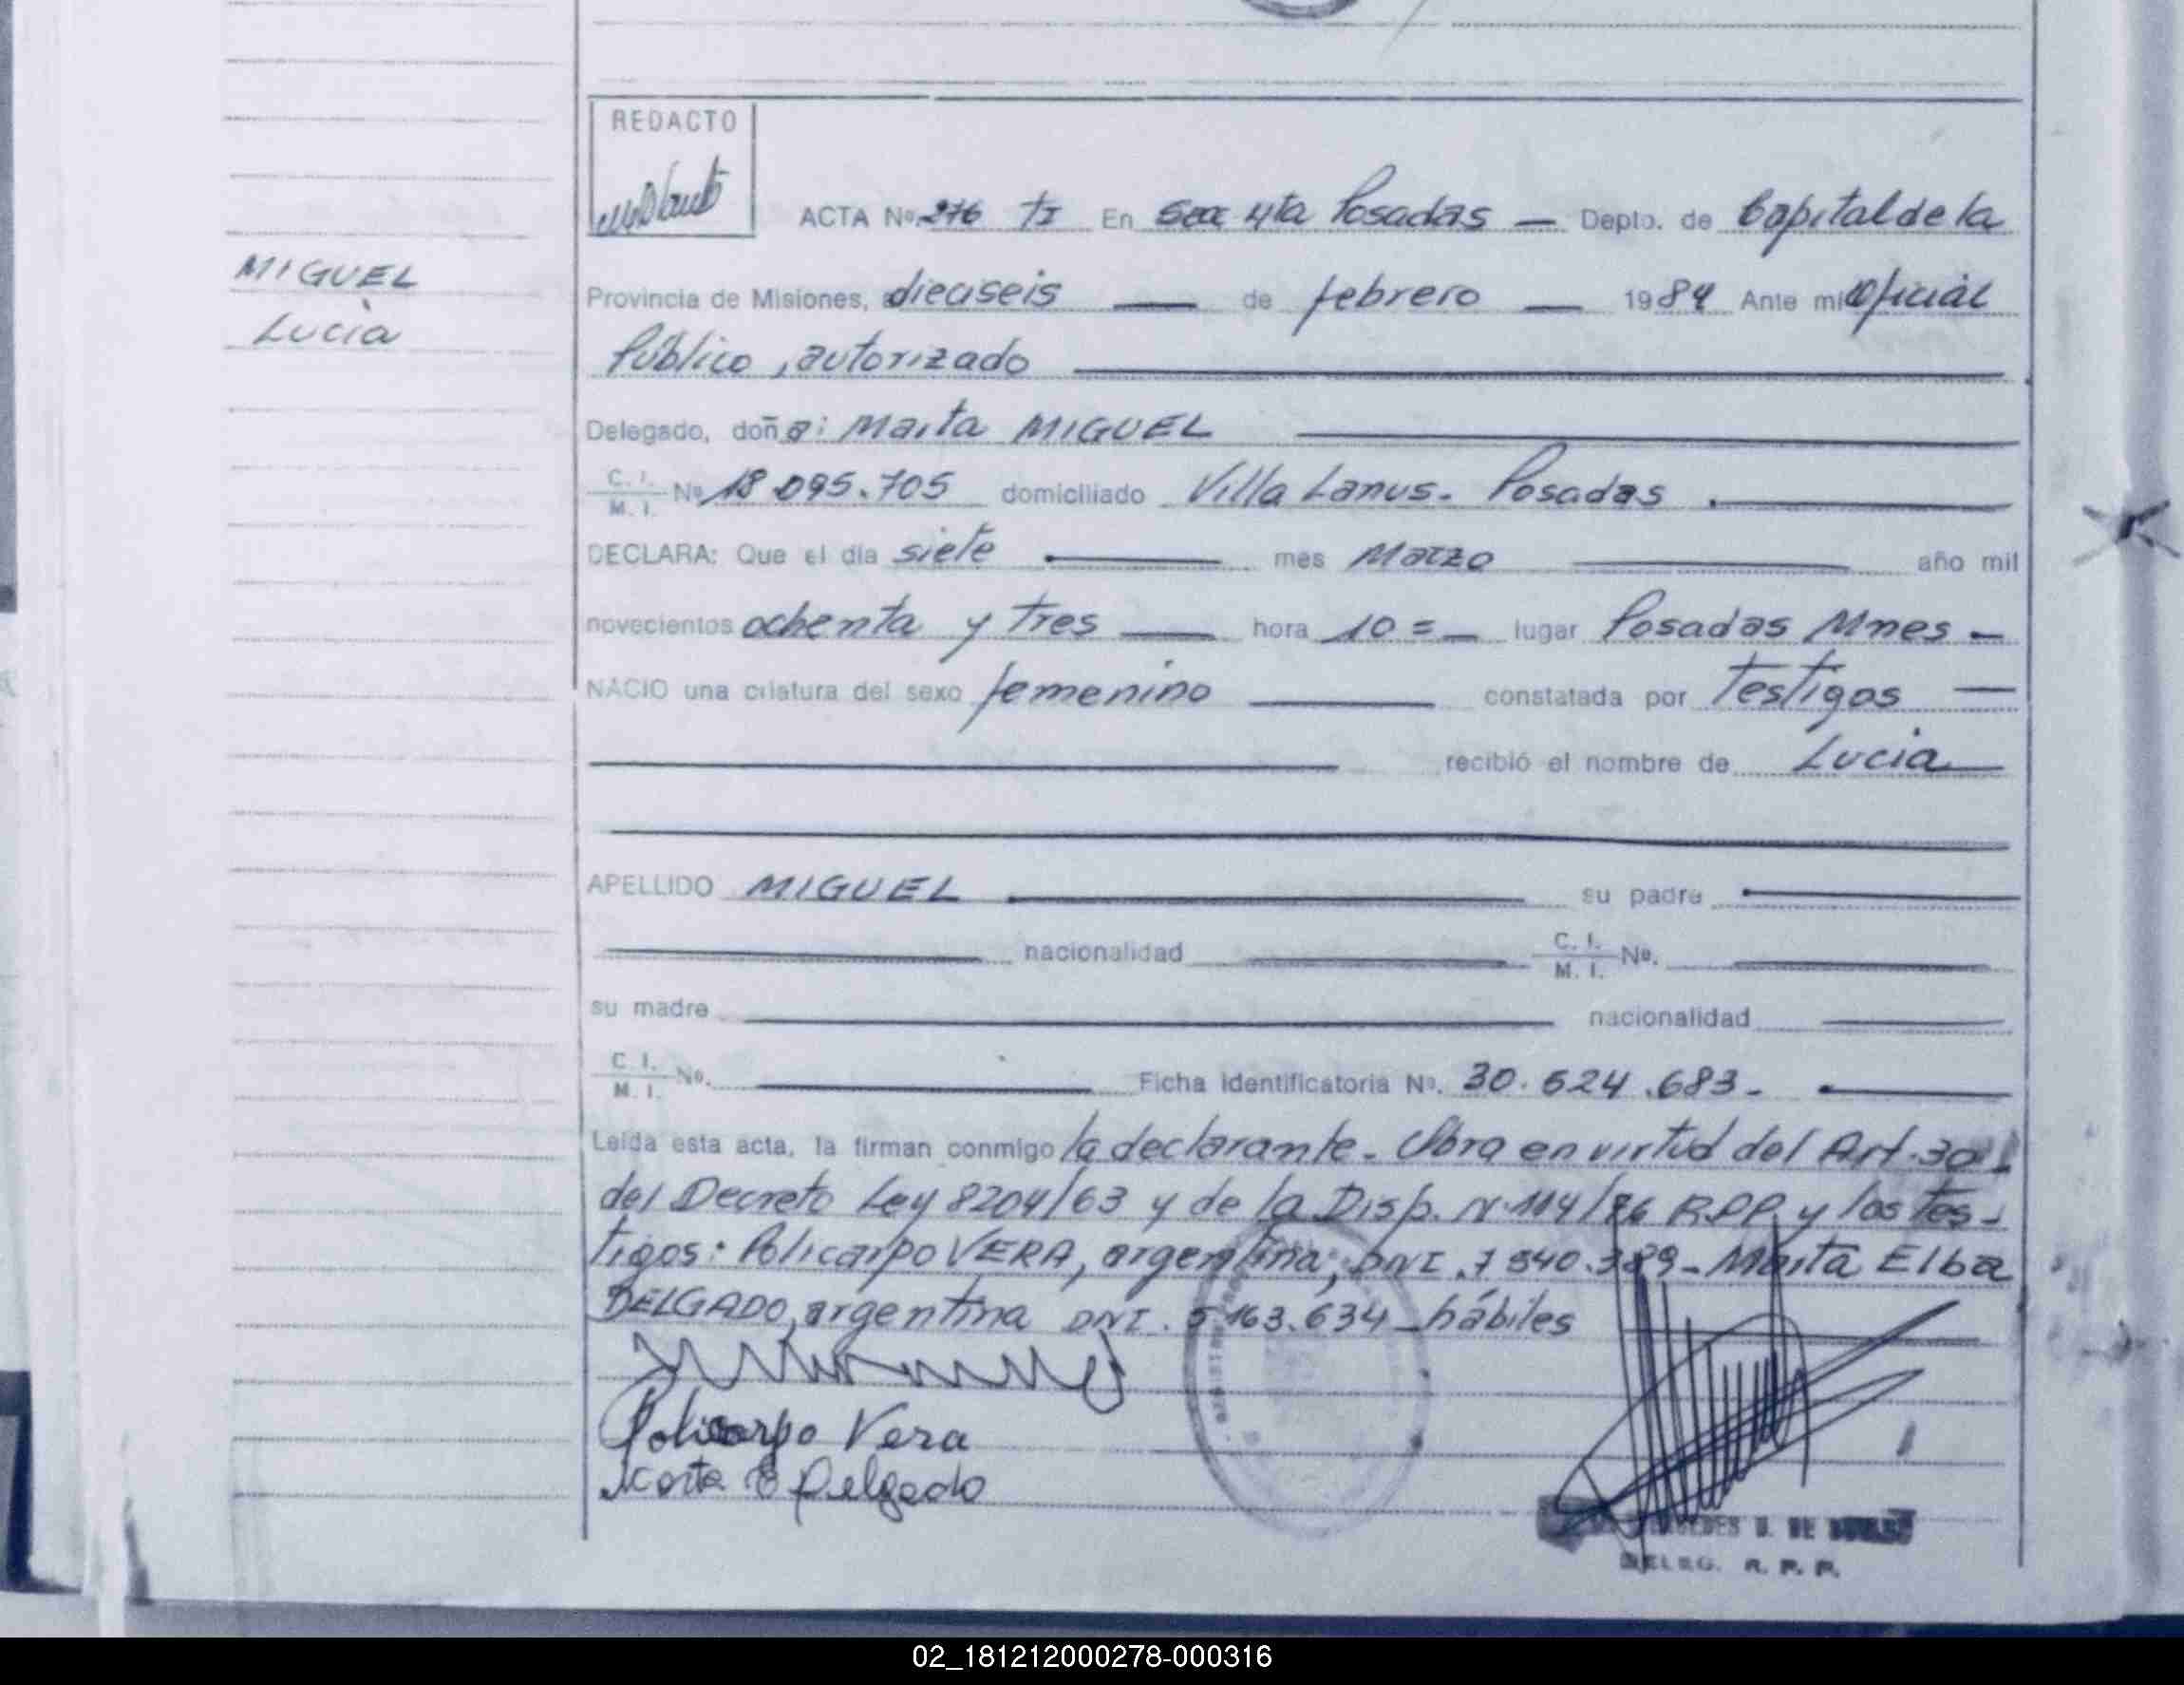 REDACTO
ACTA Nº 276 TI En Secc 4ta Posadas — Depto. de Capital de la
MIGUEL
Lucía
Provincia de Misiones, dieciseis — de febrero — 1984 Ante mi oficial
Público, autorizado
Delegado, doña: Marta MIGUEL
C. I. / M. I. Nº 18 095.705 domiciliado Villa Lanus - Posadas .
DECLARA: Que el día siete mes Marzo año mil
novecientos ochenta y tres — hora 10 = — lugar Posadas Mnes —
NACIO una criatura del sexo femenino constatada por Testigos —
recibió el nombre de Lucía
APELLIDO MIGUEL su padre
nacionalidad C. I. / M. I. Nº.
su madre nacionalidad
C. I. / M. I. Nº. Ficha Identificatoria Nº. 30.524.683 -
Leida esta acta, la firman conmigo la declarante - Obra en virtud del Art. 30
del Decreto Ley 8204/63 y de la Disp. N. 114/76 R.P.P. y los tes-
tigos: Policarpo VERA, argentina, DNI. 7 540.389 - Marta Elba
DELGADO, argentina DNI. 5 163.634 - hábiles
Policarpo Vera
Marta E Delgado
DELEG. R. P. P.
02_181212000278-000316